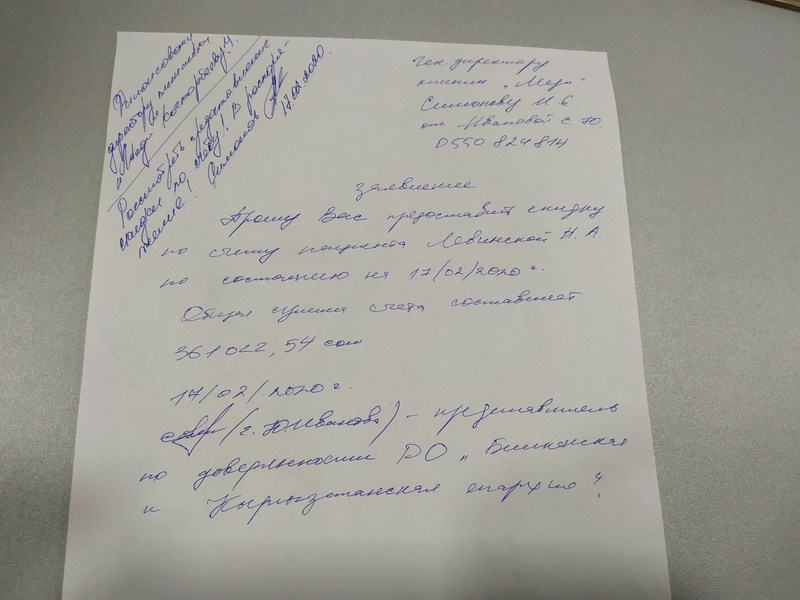 Ген. директору
клиники „Меди"
Симонову И. Б.
от Ивановой С. Ю.
0550 824 814
Финансовому
директору клиники
"Меди"
Рассмотреть предоставление
скидки по счету! В распоря-
жение! Симонов
17.02.2020.
Заявление.
Прошу Вас предоставить скидку
по счету пациента Левинской Н. А.
по состоянию на 17/02/2020 г.
Общая сумма счета составляет
361 022, 54 сом.
17/02/2020 г.
(С. Ю. Иванова) – представитель
по доверенности РО „Бишкекская
и Кыргызстанская епархия"